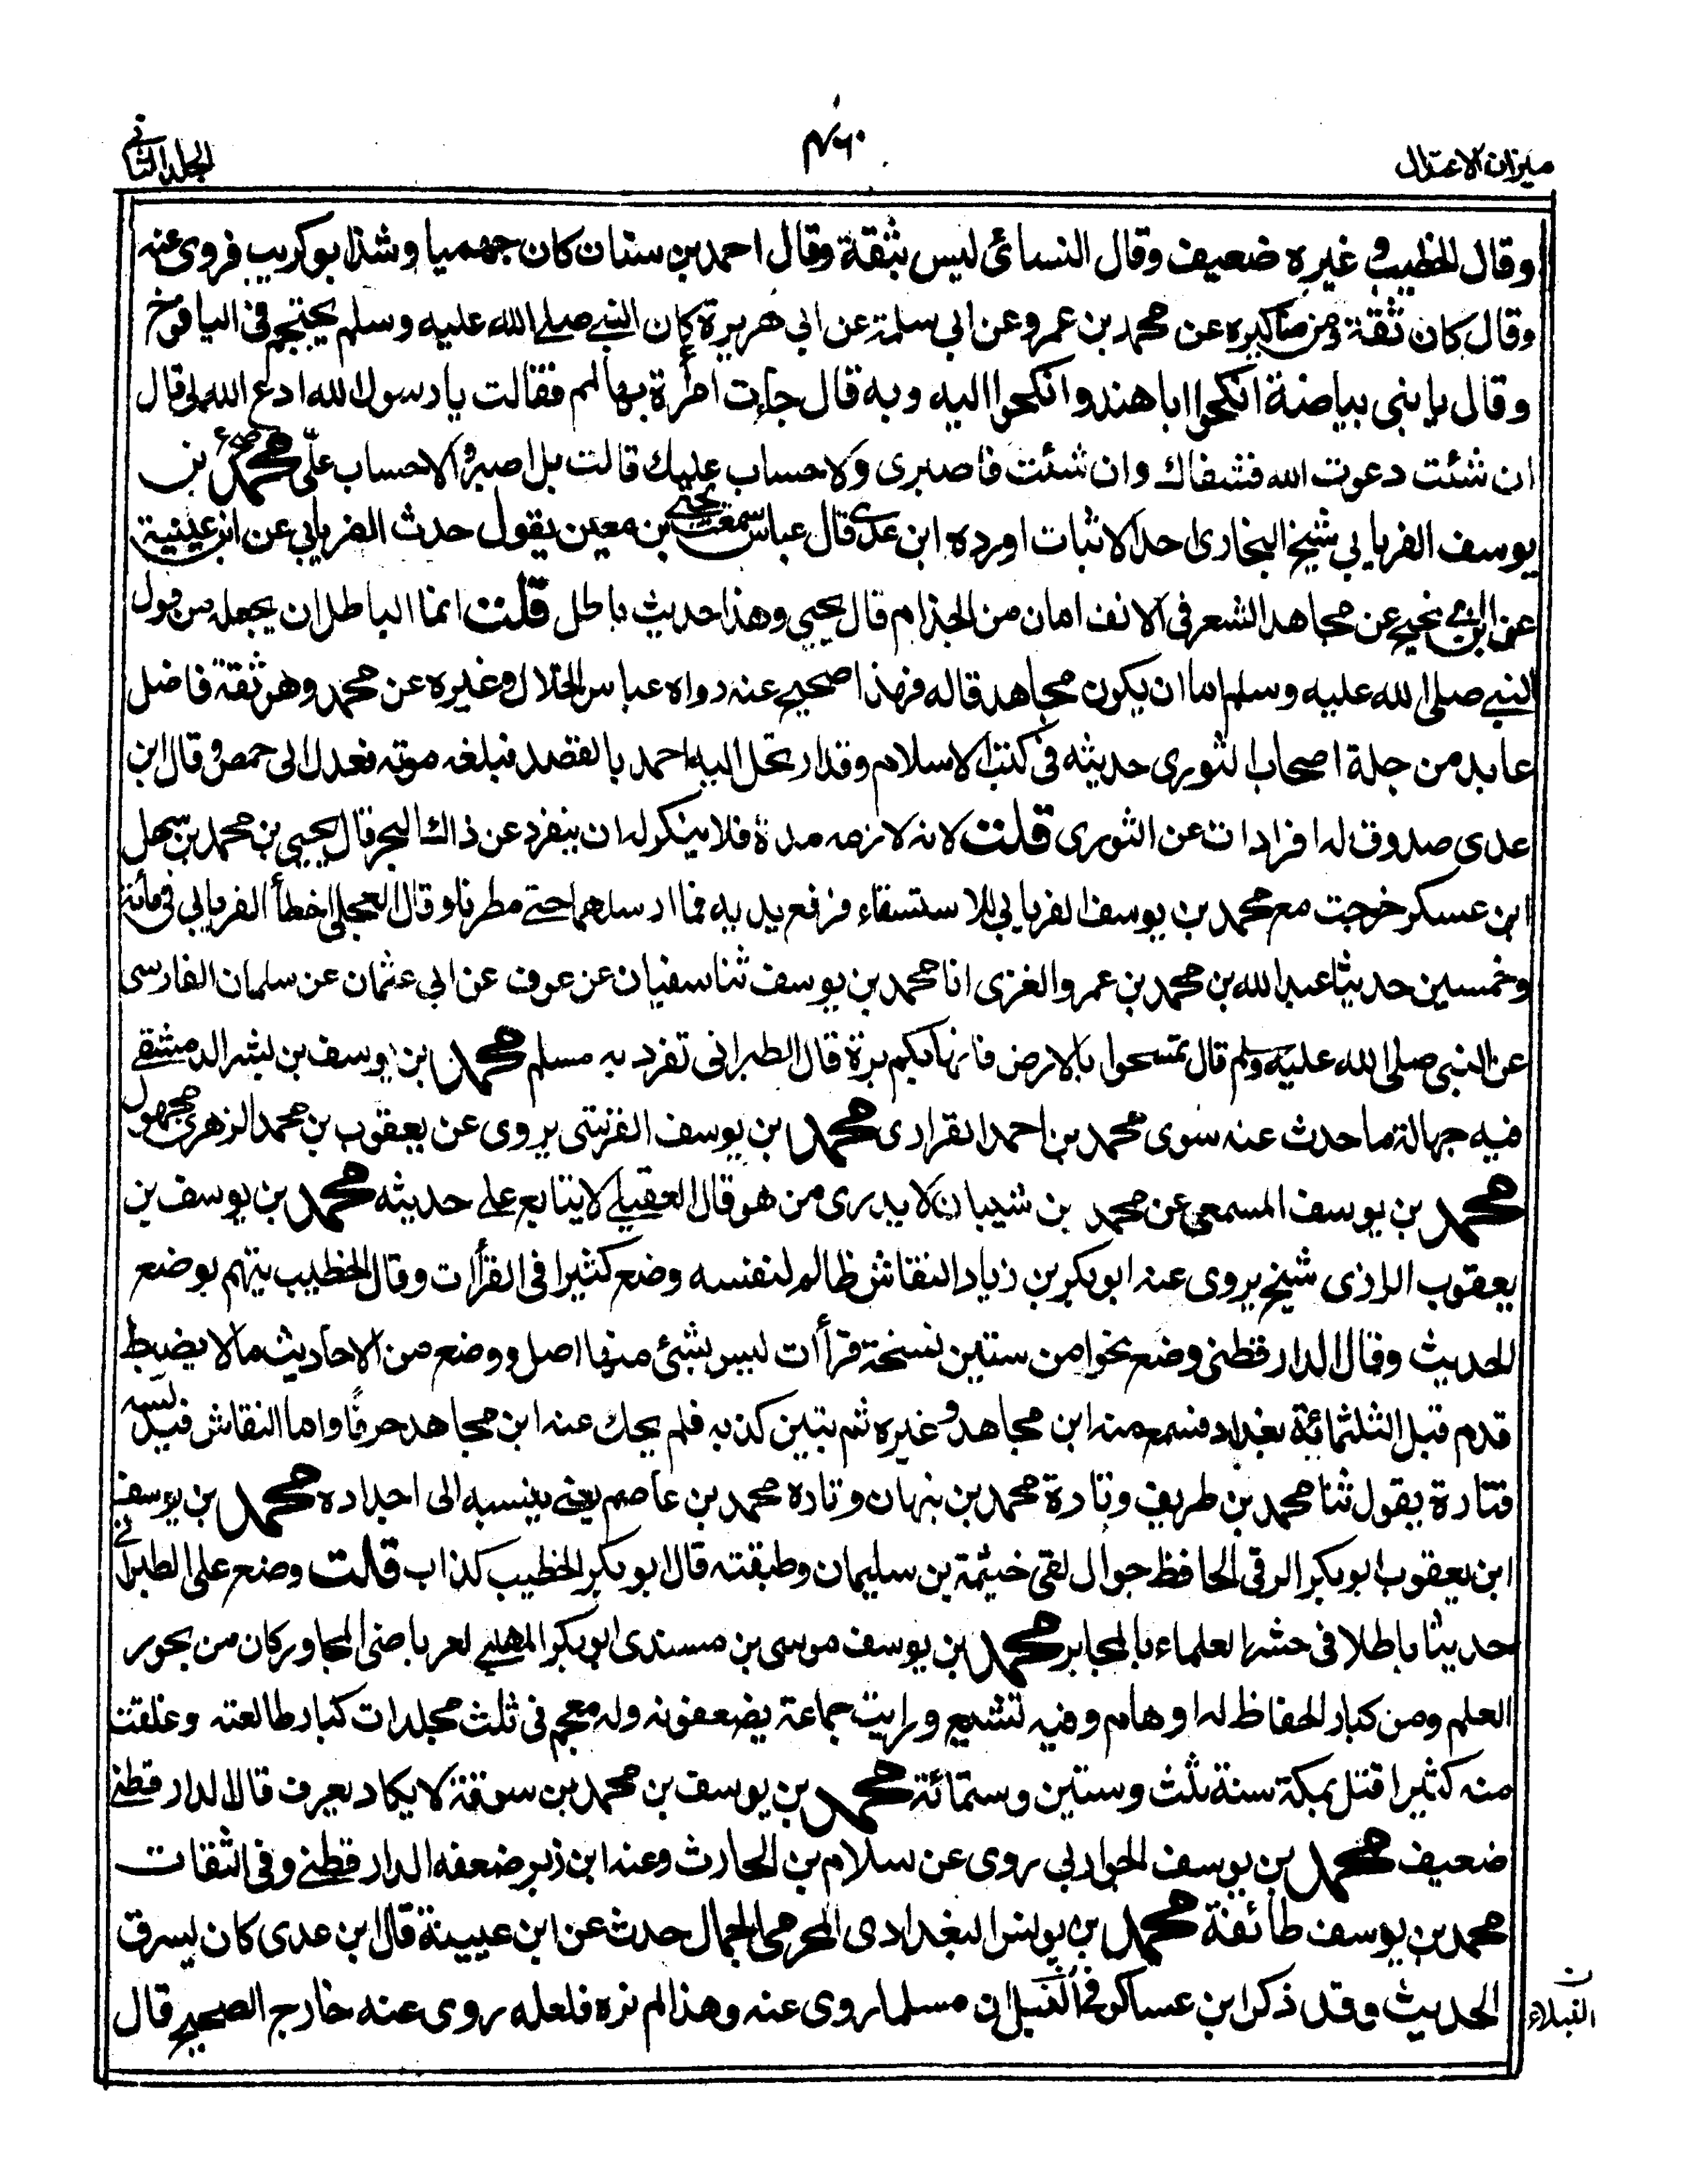 ميزان الاعتدال
٤٦٠
الجلد الثاني
وقال الخطيب وغيره ضعيف وقال النسائي ليس بثقة وقال احمد بن سنان كان جهميا وشذ ابو كريب فروى عنه
وقال كان ثقة ومن مناكيره عن محمد بن عمرو عن ابي سلمة عن ابي هريرة كان النبي صلى الله عليه وسلم يحتجم في اليافوخ
وقال يا بني بياضة انكحوا ابا هند وانكحوا اليه وبه قال جاءت امرأة بها لمم فقالت يا رسول الله ادع الله لي قال
ان شئت دعوت الله فشفاك وان شئت فاصبري ولا حساب عليك قالت بل اصبر ولا حساب علي محمد بن
يوسف الفريابي شيخ البخاري احد الاثبات اورده ابن عدي قال عباس سمعت يحيى بن معين يقول حدث الفريابي عن ابن عيينة
عن ابن ابي نجيح عن مجاهد الشعر في الانف امان من الجذام قال يحيى وهذا حديث باطل قلت انما الباطل ان يجعله من قول
النبي صلى الله عليه وسلم اما ان يكون مجاهد قاله فهذا صحيح عنه رواه عباس الخلال وغيره عن محمد وهو ثقة فاضل
عابد من جلة اصحاب الثوري حديثه في كتب الاسلام وقد ارتحل اليه احمد بالقصد فبلغه موته فعدل الى حمص وقال ابن
عدي صدوق له افرادات عن الثوري قلت لانه لازمه مدة فلا ينكر له ان ينفرد عن ذاك البحر قال يحيى بن محمد بن سهل
ابن عسكر خرجت مع محمد بن يوسف الفريابي للاستسقاء فرفع يديه فما ارسلهما حتى مطرنا وقال العجلي اخطأ الفريابي في مائة
وخمسين حديثا عبد الله بن محمد بن عمرو الغزي انا محمد بن يوسف ثنا سفيان عن عوف عن ابي عثمان عن سلمان الفارسي
عن النبي صلى الله عليه وسلم قال تمسحوا بالارض فانها بكم برة قال الطبراني تفرد به مسلم محمد بن يوسف بن بشر الدمشقي
فيه جهالة ما حدث عنه سوى محمد بن احمد القراري محمد بن يوسف القرشي يروى عن يعقوب بن محمد الزهري مجهول
محمد بن يوسف المسمعي عن محمد بن شيبان لا يدرى من هو قال العقيلي لا يتابع على حديثه محمد بن يوسف بن
يعقوب الرازي شيخ يروى عنه ابو بكر بن زياد النقاش ظالم لنفسه وضع كثيرا في القرأات وقال الخطيب يتهم بوضع
الحديث وقال الدارقطني وضع نحوا من ستين نسخة قرأات ليس بشئ منها اصل ووضع من الاحاديث ما لا يضبط
قدم قبل الثلثمائة بغداد فسمع منه ابن مجاهد وغيره ثم تبين كذبه فلم يحك عنه ابن مجاهد حرفا واما النقاش فيدلسه
فتارة يقول ثنا محمد بن طريف وتارة محمد بن نبهان وتارة محمد بن عاصم يعني ينسبه الى اجداده محمد بن يوسف
ابن يعقوب ابو بكر الرقي الحافظ جوال لقى خيثمة بن سليمان وطبقته قال ابو بكر الخطيب كذاب قلت وضع على الطبراني
حديثا باطلا في حشر العلماء بالمحابر محمد بن يوسف موسى بن مسندي ابو بكر المهلبي لعرباضي المجاور كان من بحور
العلم ومن كبار الحفاظ له اوهام وفيه تشيع ورايت جماعة يضعفونه وله معجم في ثلث مجلدات كبار طالعته وعلقت
منه كثيرا قتل بمكة سنة ثلث وستين وستمائة محمد بن يوسف بن محمد بن سوقة لا يكاد يعرف قال الدارقطني
ضعيف محمد بن يوسف الجواربي روى عن سلام بن الحارث وعنه ابن زبر ضعفه الدارقطني وفي الثقات
محمد بن يوسف طائفة محمد بن يونس البغدادي المخرمي الجمال حدث عن ابن عيينة قال ابن عدي كان يسرق
الحديث وقد ذكر ابن عساكر في النبل ان مسلما روى عنه وهذا لم نره فلعله روى عنه خارج الصحيح قال
ن
النبلاء